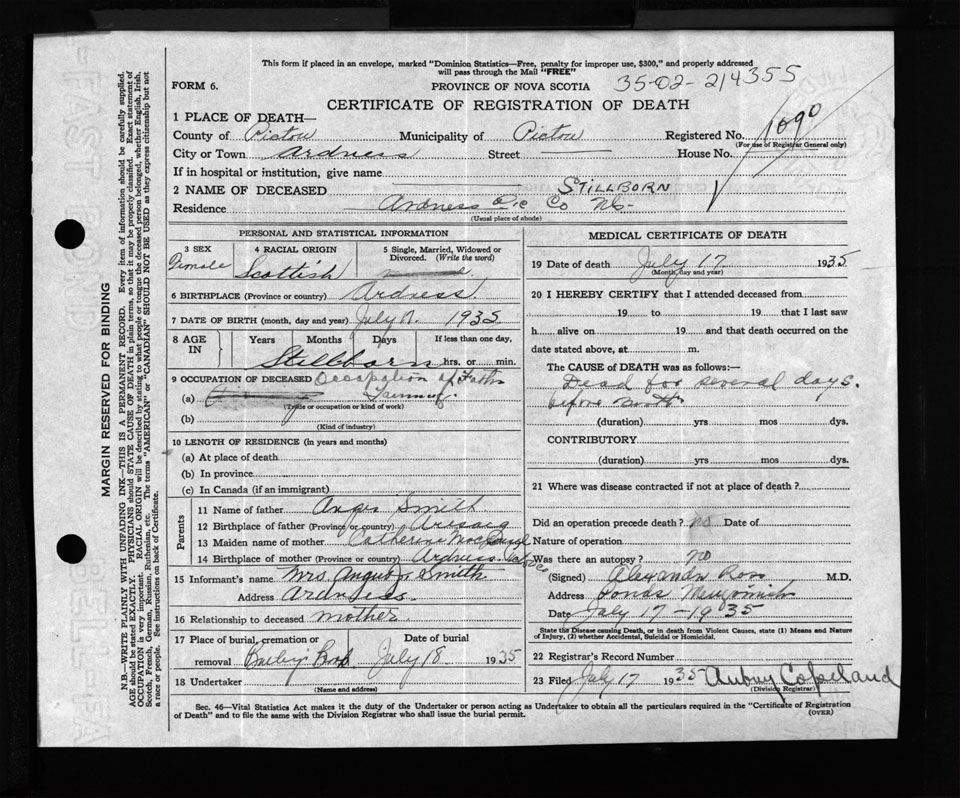 This form if placed in an envelope, marked "Dominion Statistics—Free, penalty for improper use, $300," and properly addressed
will pass through the Mail "FREE"
FORM 6.
PROVINCE OF NOVA SCOTIA
35-02-214355
CERTIFICATE OF REGISTRATION OF DEATH
1 PLACE OF DEATH—
County of Pictou Municipality of Pictou Registered No. 1090
(For use of Registrar General only)
City or Town Ardness Street House No.
If in hospital or institution, give name
2 NAME OF DECEASED STILLBORN
Residence Ardness Pic Co NS-
(Usual place of abode)
PERSONAL AND STATISTICAL INFORMATION
3 SEX
Female
4 RACIAL ORIGIN
Scottish
5 Single, Married, Widowed or
Divorced. (Write the word)
6 BIRTHPLACE (Province or country) Ardness
7 DATE OF BIRTH (month, day and year) July 17. 1935
8 AGE
IN
Years Months Days If less than one day,
Stillborn hrs. or min.
9 OCCUPATION OF DECEASED Occupation of Father
(a) Farming.
(Trade or occupation or kind of work)
(b)
(Kind of industry)
10 LENGTH OF RESIDENCE (in years and months)
(a) At place of death
(b) In province
(c) In Canada (if an immigrant)
Parents
11 Name of father Angus Smith
12 Birthplace of father (Province or country) Arisaig
13 Maiden name of mother Catherine
14 Birthplace of mother (Province or country) Ardness.
15 Informant's name Mrs. Angus Smith
Address Ardness.
16 Relationship to deceased mother
17 Place of burial, cremation or Date of burial
removal Bailey's July 18 1935
18 Undertaker
(Name and address)
MEDICAL CERTIFICATE OF DEATH
19 Date of death July 17 1935
(Month, day and year)
20 I HEREBY CERTIFY that I attended deceased from
19 to 19 that I last saw
h alive on 19 and that death occurred on the
date stated above, at m.
The CAUSE of DEATH was as follows:—
Dead for several days.
before birth
(duration) yrs mos dys.
CONTRIBUTORY
(duration) yrs mos dys.
21 Where was disease contracted if not at place of death?
Did an operation precede death? no Date of
Nature of operation
Was there an autopsy? no
(Signed) Alexander Ross M.D.
Address Ponds
Date July 17-1935
State the Disease causing Death, or in death from Violent Causes, state (1) Means and Nature
of Injury, (2) whether Accidental, Suicidal or Homicidal.
22 Registrar's Record Number
23 Filed July 17 1935 Aubrey Copeland
(Division Registrar)
Sec. 46—Vital Statistics Act makes it the duty of the Undertaker or person acting as Undertaker to obtain all the particulars required in the "Certificate of Registration
of Death" and to file the same with the Division Registrar who shall issue the burial permit.
(OVER)
MARGIN RESERVED FOR BINDING
N.B.—WRITE PLAINLY WITH UNFADING INK—THIS IS A PERMANENT RECORD. Every item of information should be carefully supplied.
AGE should be stated EXACTLY. PHYSICIANS should STATE CAUSE OF DEATH in plain terms, so that it may be properly classified. Exact statement of
OCCUPATION is very important. RACIAL ORIGIN will be described by stating to what people or tongue the deceased person belonged, whether English, Irish,
Scotch, French, German, Russian, Ruthenian, etc. The terms "AMERICAN" or "CANADIAN" SHOULD NOT BE USED as they express citizenship but not
a race or people. See instructions on back of Certificate.